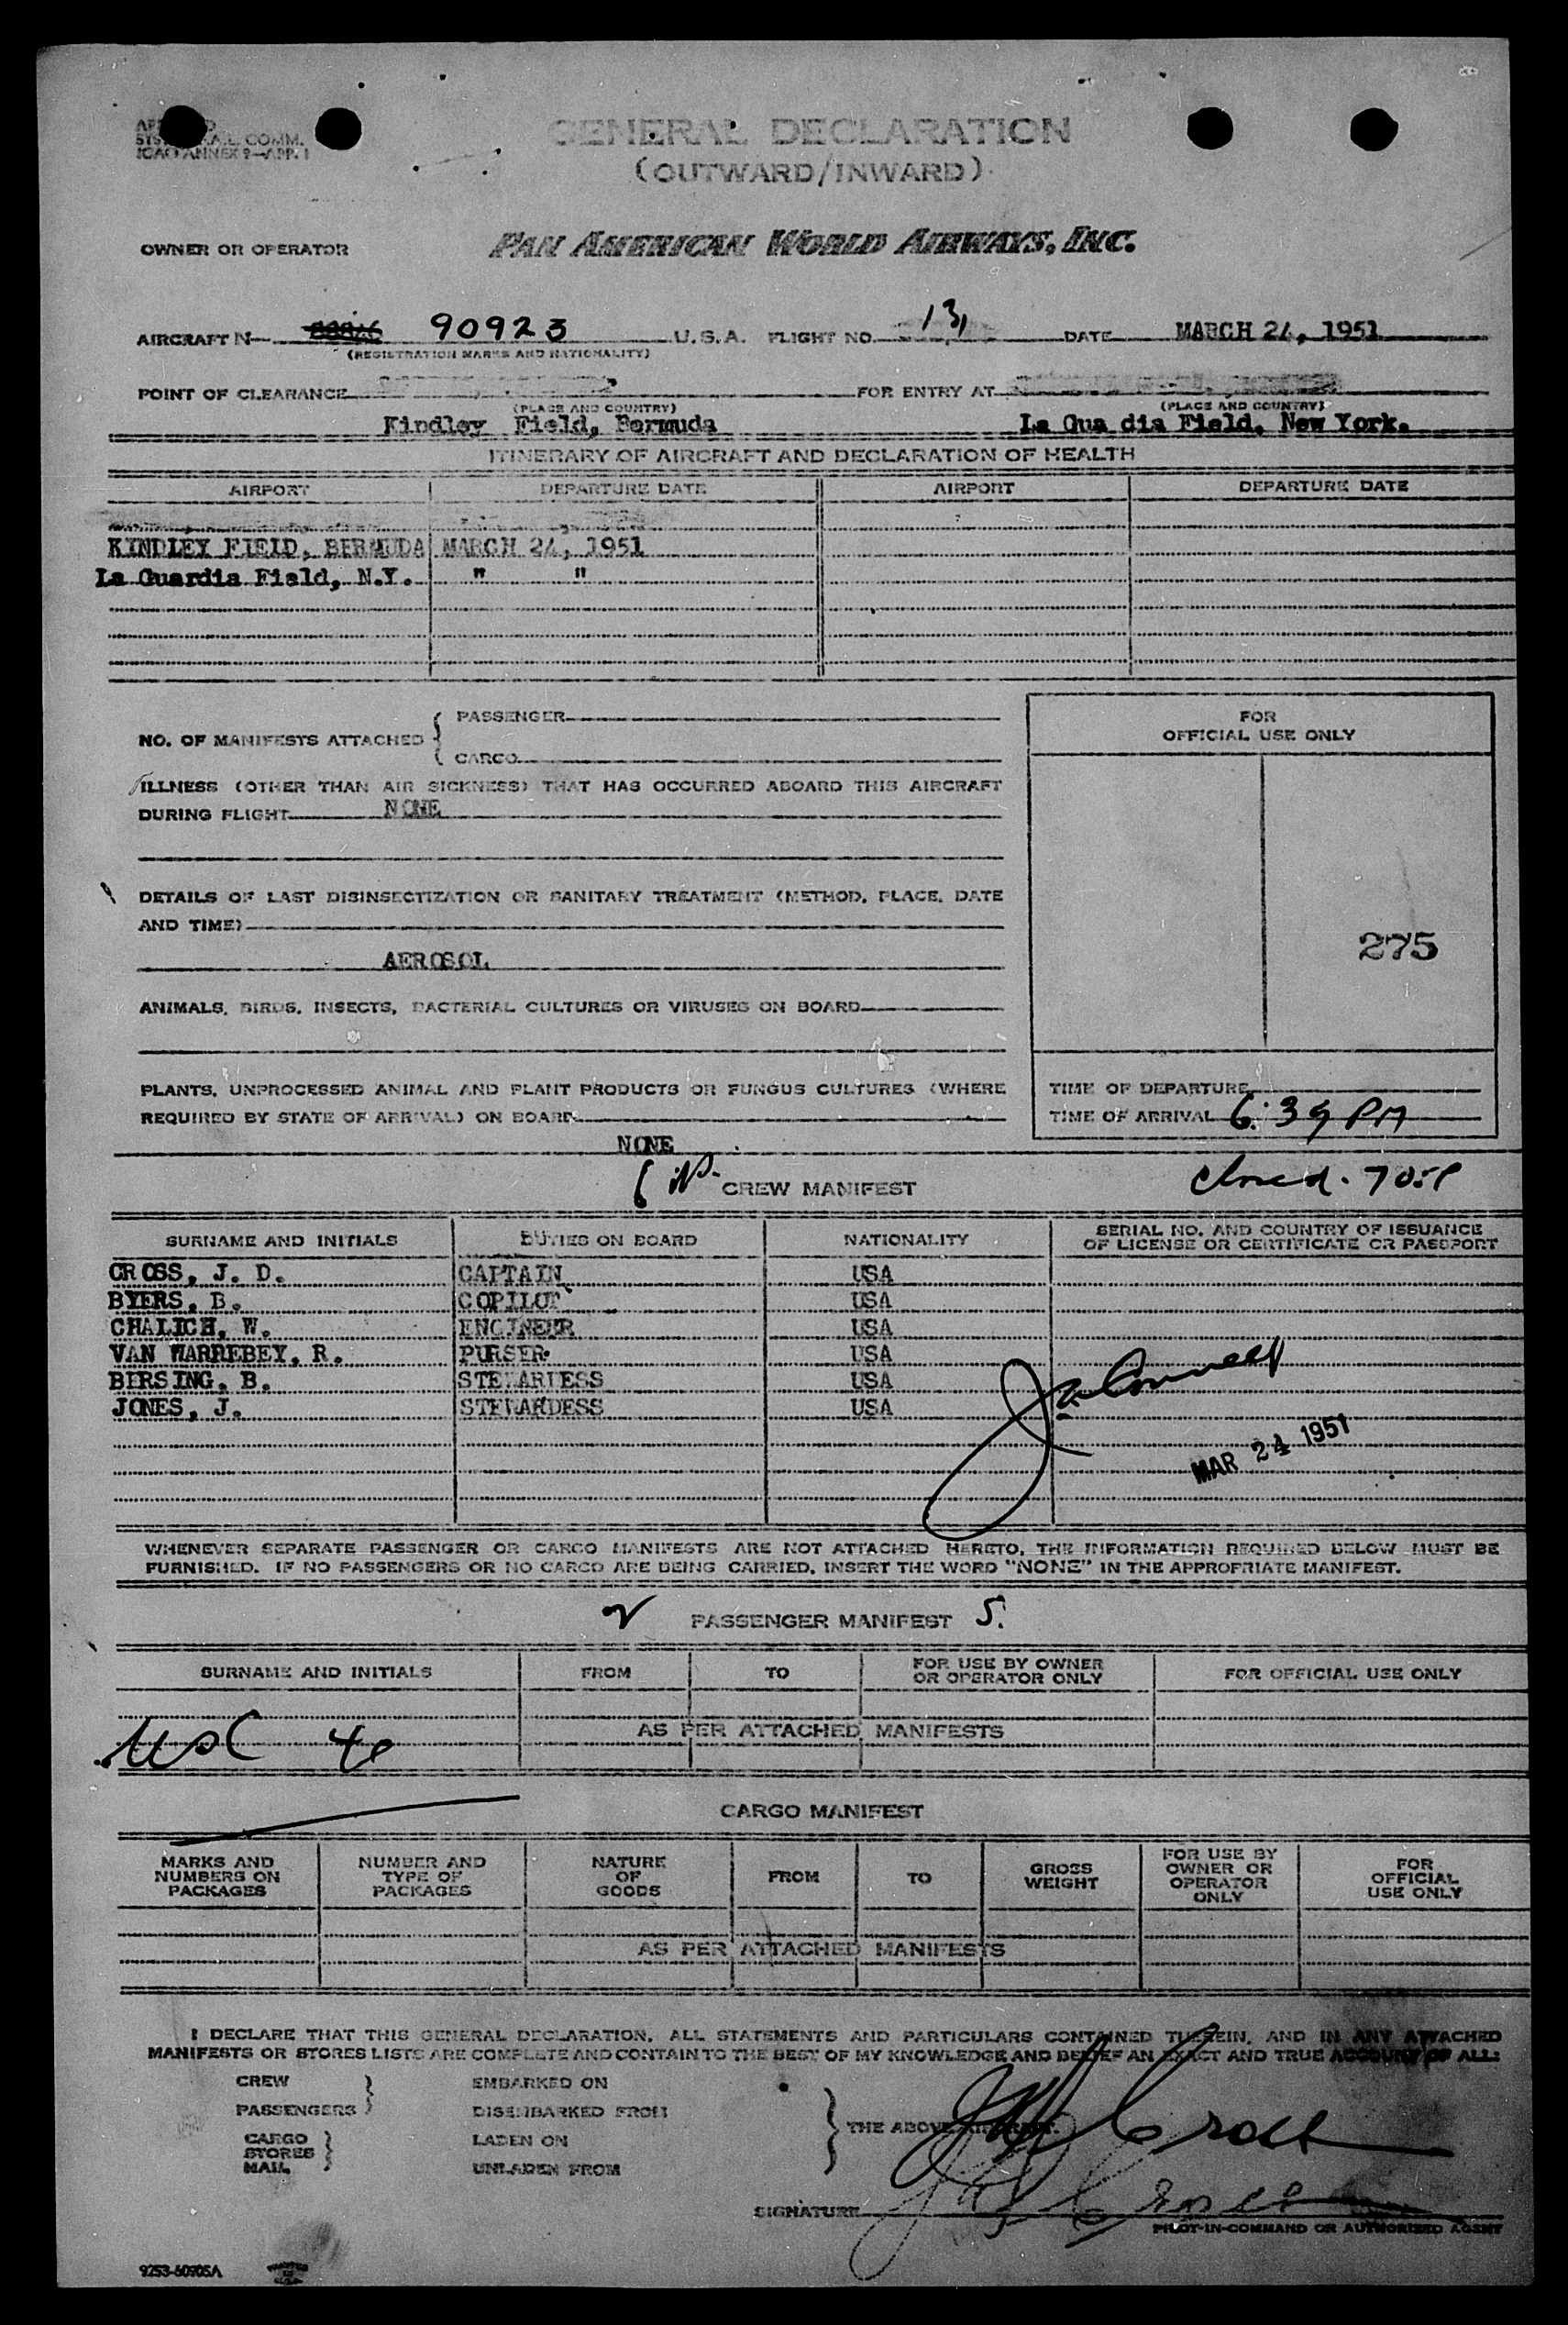 GENERAL DECLARATION
(OUTWARD/INWARD)
COMM.
ICAO ANNEX 9—APP. 1
OWNER OR OPERATOR PAN AMERICAN WORLD AIRWAYS, INC.
AIRCRAFT N— 90923 U.S.A. FLIGHT NO. 131 DATE MARCH 24, 1951
(REGISTRATION MARKS AND NATIONALITY)
POINT OF CLEARANCE FOR ENTRY AT
(PLACE AND COUNTRY) (PLACE AND COUNTRY)
Kindley Field, Bermuda La Gua dia Field, New York.
ITINERARY OF AIRCRAFT AND DECLARATION OF HEALTH
AIRPORT DEPARTURE DATE AIRPORT DEPARTURE DATE
KINDLEY FIELD, BERMUDA MARCH 24, 1951
La Guardia Field, N.Y. " "
NO. OF MANIFESTS ATTACHED { PASSENGER
CARGO
ILLNESS (OTHER THAN AIR SICKNESS) THAT HAS OCCURRED ABOARD THIS AIRCRAFT
DURING FLIGHT NONE
DETAILS OF LAST DISINSECTIZATION OR SANITARY TREATMENT (METHOD, PLACE, DATE
AND TIME)
AEROSOL
ANIMALS, BIRDS, INSECTS, BACTERIAL CULTURES OR VIRUSES ON BOARD
PLANTS, UNPROCESSED ANIMAL AND PLANT PRODUCTS OR FUNGUS CULTURES (WHERE
REQUIRED BY STATE OF ARRIVAL) ON BOARD
NONE
FOR
OFFICIAL USE ONLY
275
TIME OF DEPARTURE
TIME OF ARRIVAL 6:39 PM
6 CREW MANIFEST Closed. 705P
SURNAME AND INITIALS DUTIES ON BOARD NATIONALITY SERIAL NO. AND COUNTRY OF ISSUANCE
OF LICENSE OR CERTIFICATE OR PASSPORT
CROSS, J. D. CAPTAIN USA
BYERS, B. COPILOT USA
CHALICH, W. ENGINEER USA
VAN WARREBEY, R. PURSER USA
BIRSING, B. STEWARDESS USA
JONES, J. STEWARDESS USA
MAR 24 1951
WHENEVER SEPARATE PASSENGER OR CARGO MANIFESTS ARE NOT ATTACHED HERETO, THE INFORMATION REQUIRED BELOW MUST BE
FURNISHED. IF NO PASSENGERS OR NO CARGO ARE BEING CARRIED, INSERT THE WORD "NONE" IN THE APPROPRIATE MANIFEST.
PASSENGER MANIFEST 5.
SURNAME AND INITIALS FROM TO FOR USE BY OWNER
OR OPERATOR ONLY FOR OFFICIAL USE ONLY
AS PER ATTACHED MANIFESTS
USC
CARGO MANIFEST
MARKS AND
NUMBERS ON
PACKAGES NUMBER AND
TYPE OF
PACKAGES NATURE
OF
GOODS FROM TO GROSS
WEIGHT FOR USE BY
OWNER OR
OPERATOR
ONLY FOR
OFFICIAL
USE ONLY
AS PER ATTACHED MANIFESTS
I DECLARE THAT THIS GENERAL DECLARATION, ALL STATEMENTS AND PARTICULARS CONTAINED THEREIN, AND IN ANY ATTACHED
MANIFESTS OR STORES LISTS ARE COMPLETE AND CONTAIN TO THE BEST OF MY KNOWLEDGE AND BELIEF AN EXACT AND TRUE ACCOUNT OF ALL:
CREW EMBARKED ON
PASSENGERS DISEMBARKED FROM
THE ABOVE AIRCRAFT.
CARGO LADEN ON
STORES
MAIL UNLADEN FROM
SIGNATURE
PILOT-IN-COMMAND OR AUTHORIZED AGENT
9253-50905A